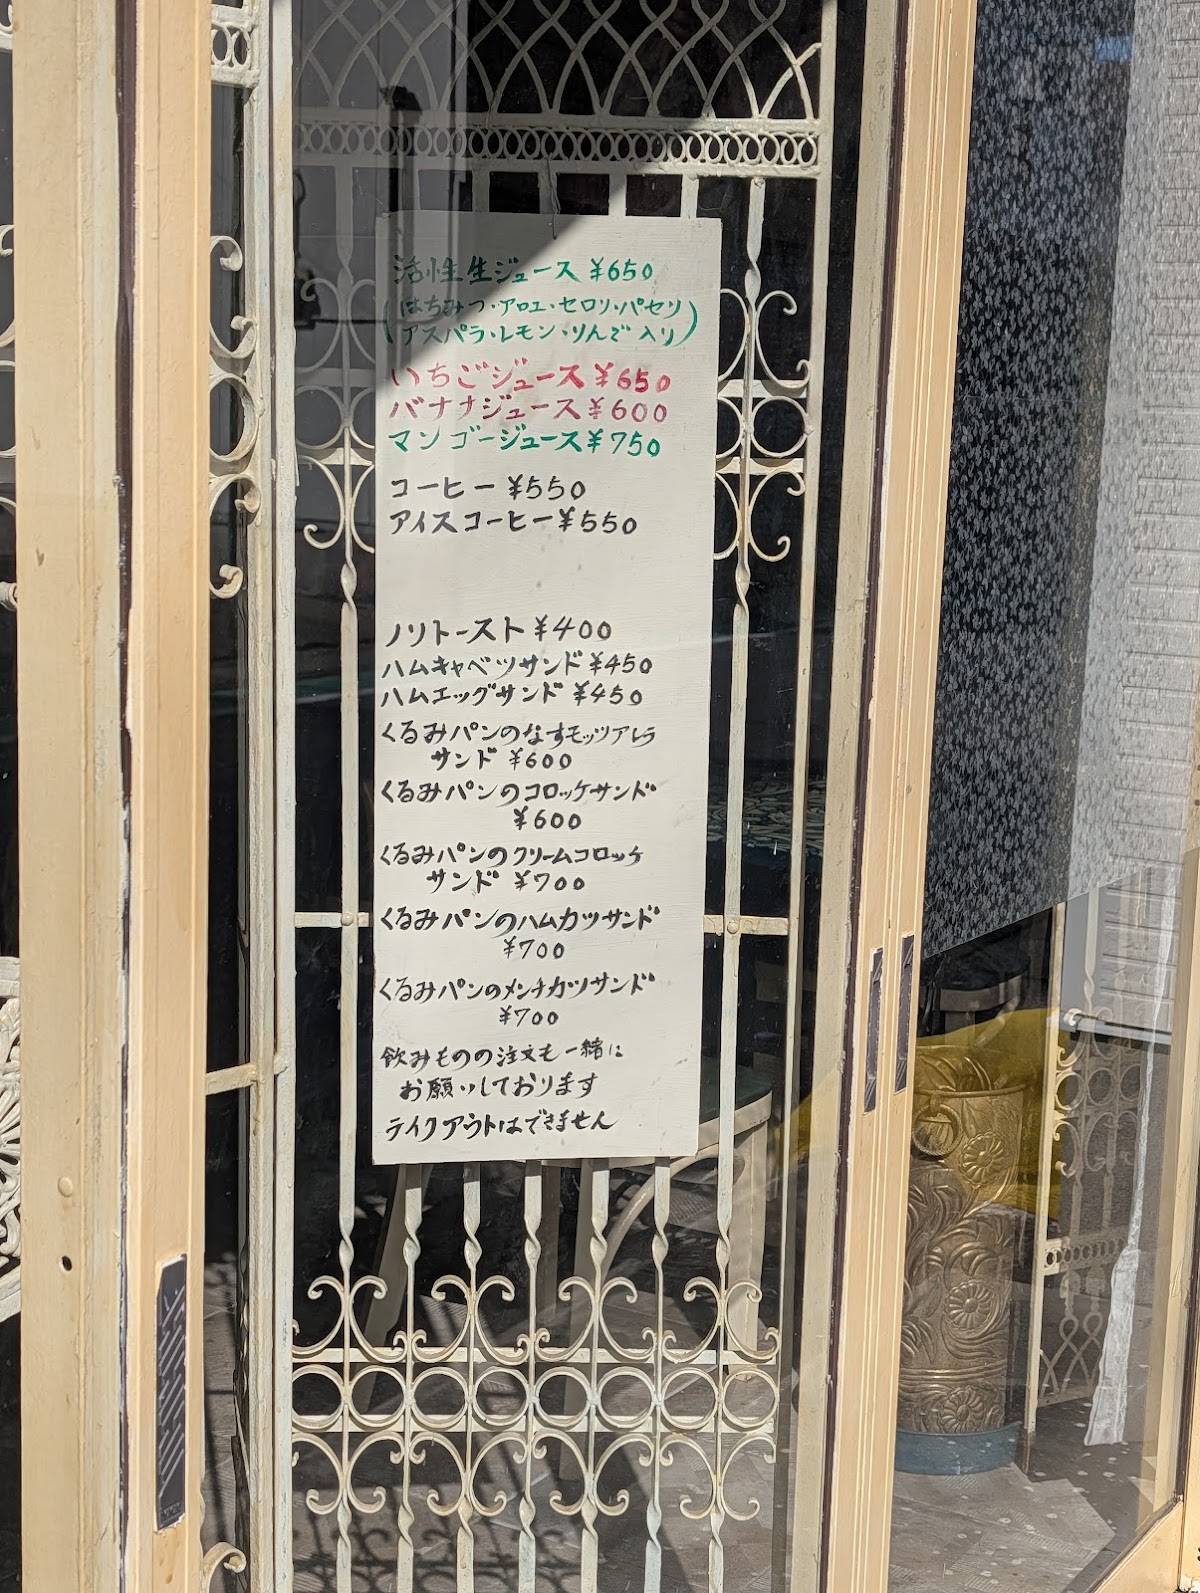 活性生ジュース ¥650
(はちみつ・アロエ・セロリ・パセリ
アスパラ・レモン・りんご入り)
いちごジュース ¥650
バナナジュース ¥600
マンゴージュース ¥750
コーヒー ¥550
アイスコーヒー ¥550
ノリトースト ¥400
ハムキャベツサンド ¥450
ハムエッグサンド ¥450
くるみパンのなすモッツアレラ
サンド ¥600
くるみパンのコロッケサンド
¥600
くるみパンのクリームコロッケ
サンド ¥700
くるみパンのハムカツサンド
¥700
くるみパンのメンチカツサンド
¥700
飲みものの注文も一緒に
お願いしております
テイクアウトはできません